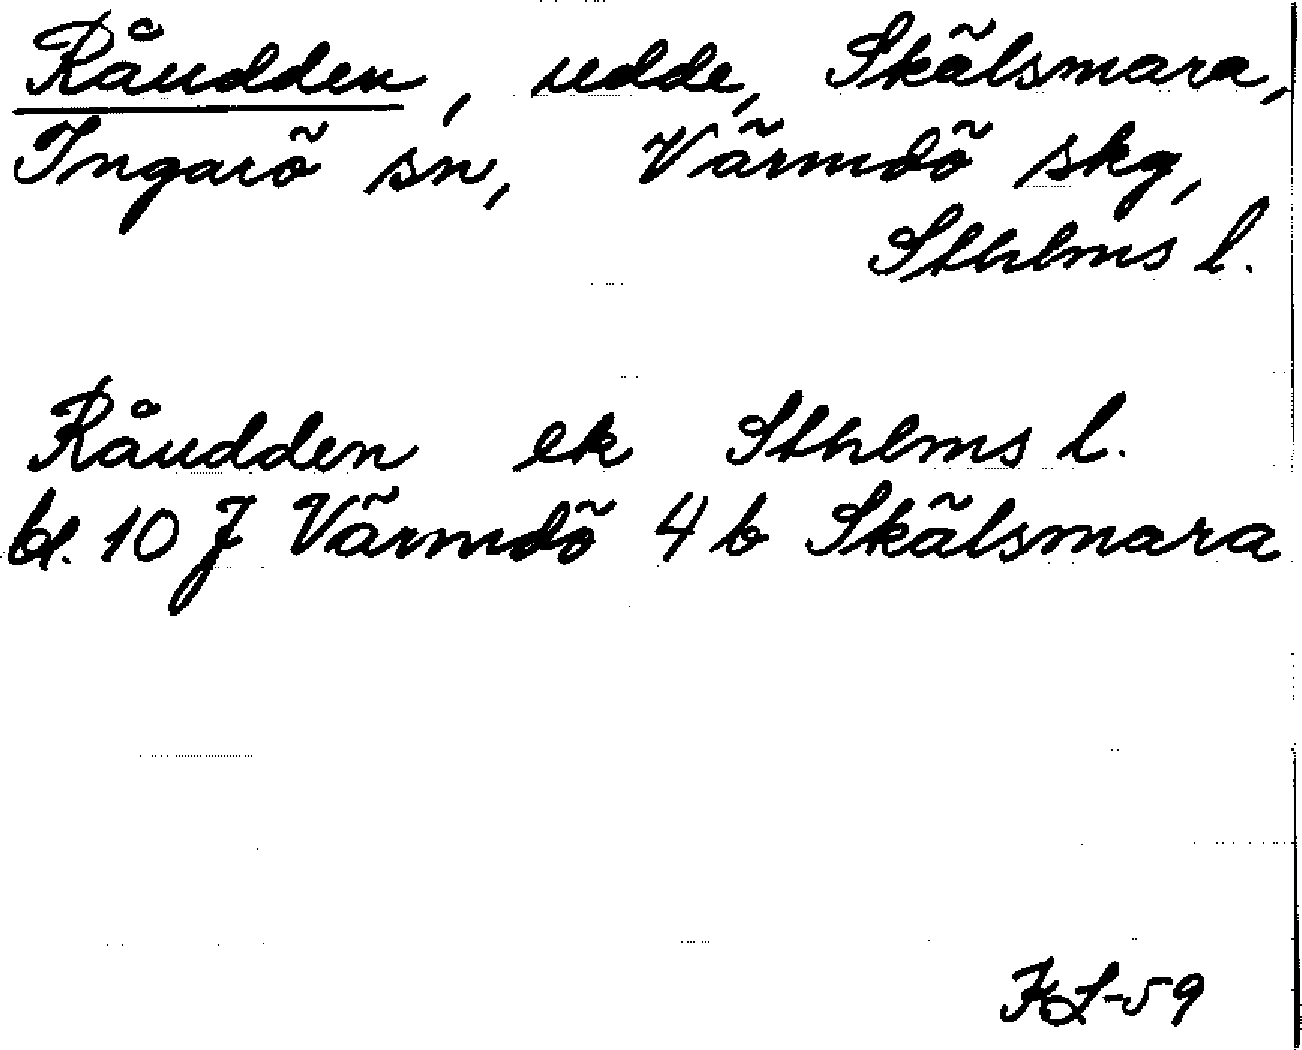 Råudden, udde, Skälsmara,
Ingarö sn, Värmdö skg,
Sthlms l.
Råudden ek Sthlms l.
bl. 10 J Värmdö 4 b Skälsmara
KL-59